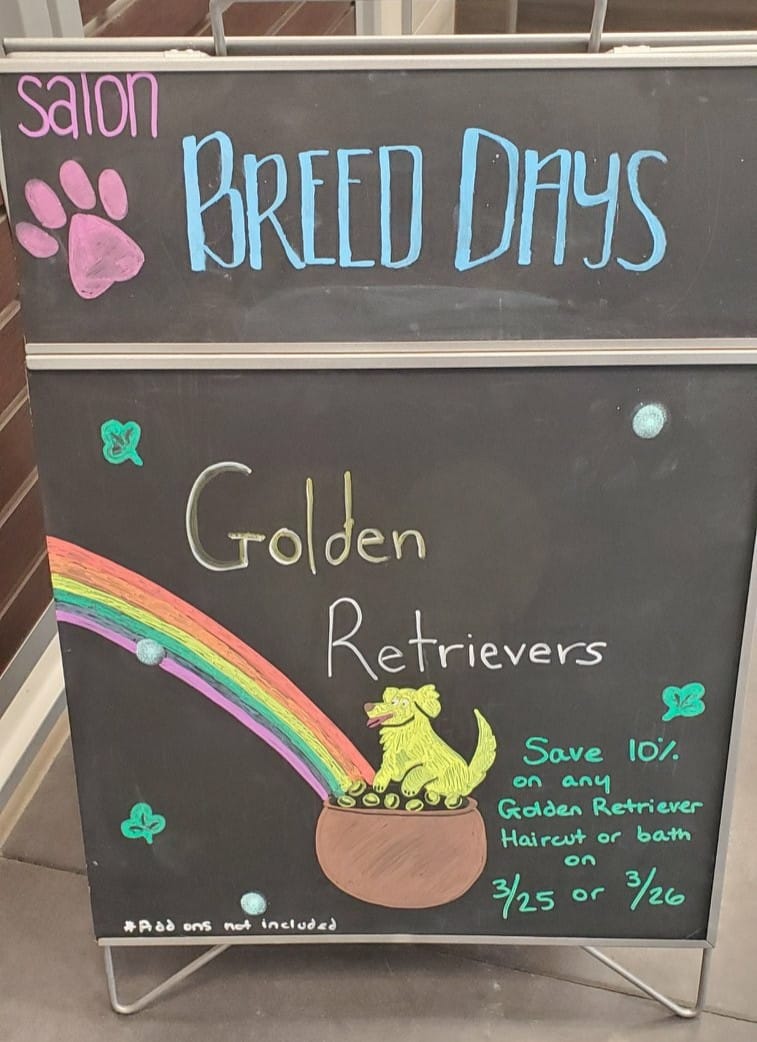 salon
BREED DAYS
Golden
Retrievers
Save 10%
on any
Golden Retriever
Haircut or bath
on
3/25 or 3/26
*Add ons not included